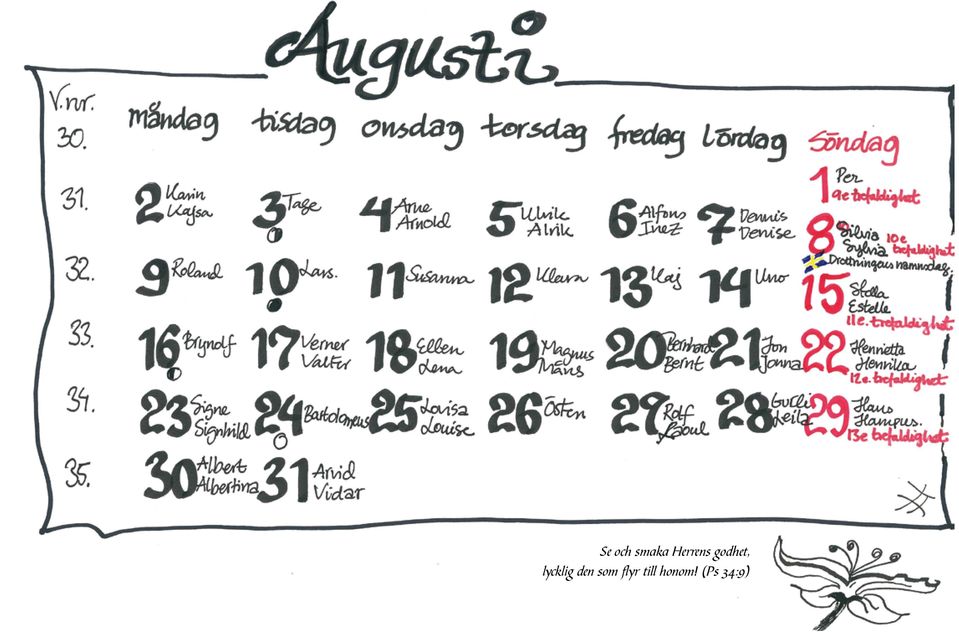 Augusti
V.nr. måndag tisdag onsdag torsdag fredag lördag söndag
30. 1 Per
9e trefaldighet
31. 2 Karin Kajsa 3 Tage 4 Arne Arnold 5 Ulrik Alrik 6 Alfons Inez 7 Dennis Denise 8 Silvia Sylvia 10e trefaldighet
Drottningens namnsdag.
32. 9 Roland 10 Lars. 11 Susanna 12 Klara 13 Kaj 14 Uno 15 Stella Estelle
11e. trefaldighet
33. 16 Brynolf 17 Verner Valter 18 Ellen Lena 19 Magnus Måns 20 Bernhard Bernt 21 Jon Jonna 22 Henrietta Henrika
12e. trefaldighet
34. 23 Signe Signhild 24 Bartolomeus 25 Lovisa Louise 26 Östen 27 Rolf Raoul 28 Gurli Leila 29 Hans Hampus.
13e trefaldighet
35. 30 Albert Albertina 31 Arvid Vidar
Se och smaka Herrens godhet,
lycklig den som flyr till honom! (Ps 34:9)